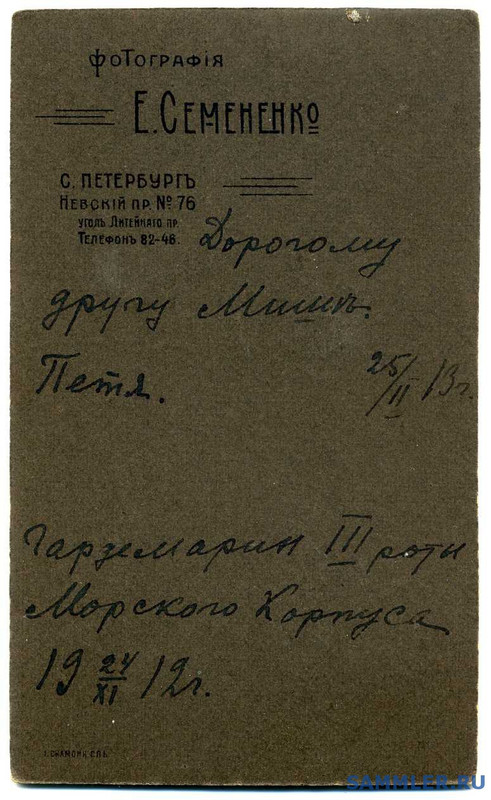 фоТографія
Е. Семененко
С. ПЕТЕРБУРГЪ
Невскій пр. № 76
уголъ Литейнаго пр.
Телефонъ 82-46.
Дорогому
другу Мишѣ.
Петя.
25/II 13 г.
Гардемарин III роты
Морского Корпуса
19 24/XI 12 г.
SAMMLER.RU